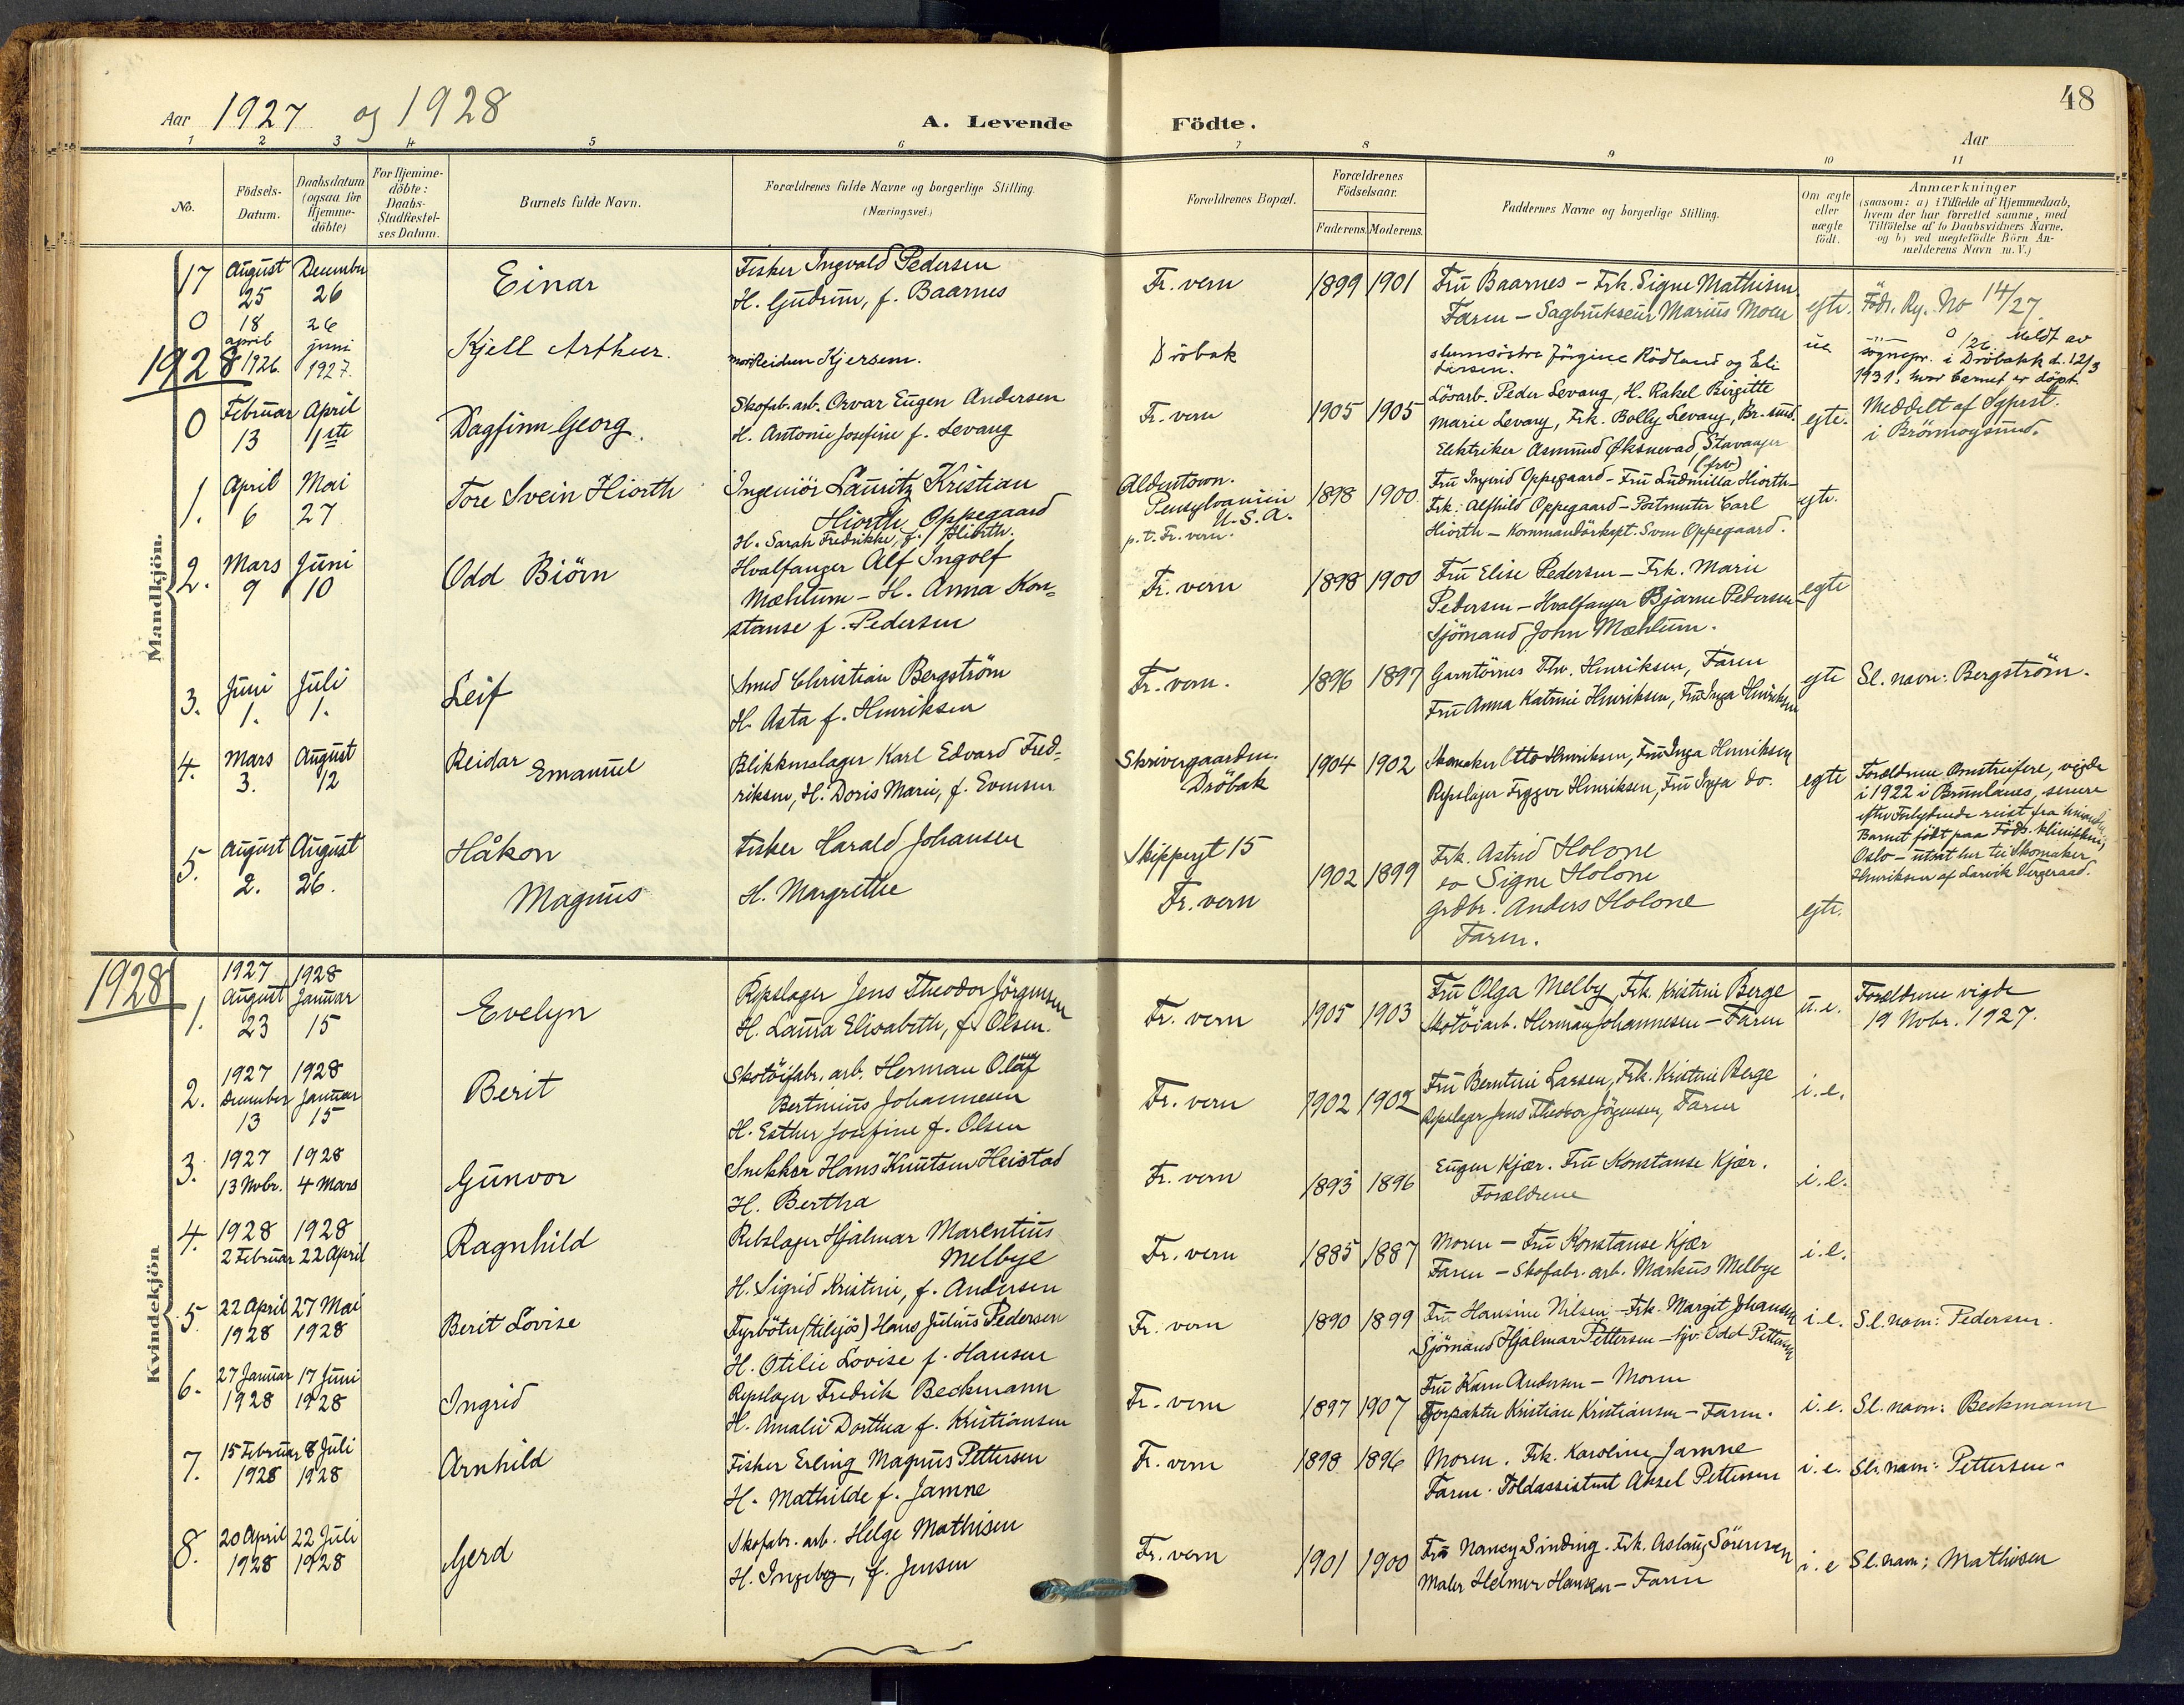 48
Aar 1927 og 1928
A. Levende Födte.
Aar
1 2 3 4 5 6 7 8 9 10 11
No.
Födsels-
Datum.
Daabsdatum
(ogsaa for
Hjemme-
döbte)
For Hjemme-
döbte:
Daabs-
Stadfæstel-
ses Datum.
Barnets fulde Navn.
Forældrenes fulde Navne og borgerlige Stilling.
(Næringsvei.)
Forældrenes Bopæl.
Forældrenes
Födselsaar.
Faderens. Moderens.
Faddernes Navne og borgerlige Stilling.
Om ægte
eller
uægte
født.
Anmærkninger
(saasom: a) i Tilfælde af Hjemmedaab,
hvem der har forrettet samme, med
Tilföielse af to Daabsvidners Navne.
og b) ved uægtefödte Börn An-
melderens Navn m.V.)
Mandkjön.
17
August
25
December
26
Einar
Fisker Ingvald Pedersen
H. Gudrun, f. Baarnes
Fr. vern
1899 1901
Fru Baarnes - Frk. Signe Mathisen
Faren - Sagbrukseier Marius Moen
egte.
Föds. Rg. No 14/27
0
18
april
1926.
26
juni
1927.
Kjell Arthur.
mor: Reidun Kjersem.
Dröbak
söstre Jörgine Rödland og Eli
ue
0/26. Meldt av
sognepr. i Dröbakk d. 12/3
1931, hvor barnet er döpt.
1928
0
Februar
13
April
1ste
Dagfinn Georg.
Skofab. arb. Orvar Eugen Andersen
H. Antonie Josefine f. Levang
Fr. vern
1905 1905
Lösarb. Peder Levang, H. Rakel Birgitte
Marie Levang, Frk. Bolly Levang, Br. sund.
Elektriker Asmund Øksnevad, Stavanger
egte.
Meddelt af Sgprst.
i Brönnöysund.
1.
April
6
Mai
27
Tore Svein Hiorth
Ingeniör Lauritz Kristian
Hiorth Oppegaard
H. Sarah Fredrikke, f. Hiorth.
Aldentown.
Pensylvanien
U.S.A.
p.t. Fr. vern.
1898 1900
Fru Ingrid Oppegaard - Fru Ludmilla Hiorth -
Frk: Alfhild Oppegaard - Postmester Carl
Hiorth - Kommandörkapt. Sven Oppegaard.
egte.
2.
Mars
9
Juni
10
Odd Biörn
Hvalfanger Alf Ingolf
Mæhlum - H. Anna Kon=
stanse f. Pedersen
Fr. vern
1898 1900
Fru Elise Pedersen - Frk. Marie
Pedersen - Hvalfanger Bjarne Pedersen -
Sjömand John Mæhlum.
egte
3.
Juni
1.
Juli
1.
Leif
Smed Christian Bergström
H. Asta f. Henriksen
Fr. vern.
1896 1897
Thv. Henriksen, Faren
Fru Anna Katrine Henriksen, Fru Inga Henriksen
egte
Sl. navn: Bergström.
4.
Mars
3.
August
12
Reidar Emanuel
Blikkenslager Karl Edvard Fred-
riksen, H. Doris Marie, f. Evensen
Skrivergaarden.
Dröbak
1904 1902
Skomaker Otto Henriksen, Fru Inga Henriksen
Repslager Trygve Henriksen, Fru Inga do.
egte
Forældrene Omstreifere, vigde
i 1922 i Brunlanes, senere
efter Forlydende reist fra hinanden
Barnet födt paa Föds. klinikken,
Oslo - utsat her til Skomaker
Henriksen af Larvik Vergeraad.
5.
August
2.
August
26.
Håkon
Magnus
Fisker Harald Johansen
H. Margrethe
Skippergt 15
Fr. vern
1902 1899
Frk. Astrid Holone
do Signe Holone
Grdbr. Anders Holone
Faren.
egte.
Kvindekjön
1928
1.
1927
August
23
1928
Januar
15
Evelyn
Repslager Jens Theodor Jörgensen
H. Laura Elisabeth, f. Olsen.
Fr. vern
1905 1903
Fru Olga Melby, Frk. Kristine Berge
Skotöiarb. Herman Johannesen - Faren
u.e.
Forældrene vigde
19 Novbr. 1927.
2.
1927
December
13
1928
Januar
15
Berit
Skotöifabr. arb. Herman Olaf
Bertinius Johannesen
H. Esther Josefine f. Olsen
Fr. vern
1902 1902
Fru Berntine Larsen, Frk. Kristine Berge
Repslager Jens Theodor Jörgensen, Faren
i.e.
3.
1927
13 Novbr.
1928
4 Mars
Gunvor
Snekker Hans Knutsen Heistad
H. Bertha
Fr. vern
1893 1896
Eugen Kjær. Fru Konstanse Kjær.
Forældrene
i.e.
4.
1928
2 Februar
1928
22 April
Ragnhild
Rebslager Hjalmar Marentius
Melbye
H. Sigrid Kristine, f. Andersen
Fr. vern
1885 1887
Moren - Fru Konstanse Kjær
Faren - Skofabr. arb. Markus Melbye
i.e.
5
22 April
1928
27 Mai
1928
Berit Lovise
Fyrböter (tilsjös) Hans Julius Pedersen
H. Otilie Lovise f. Hansen
Fr. vern
1890 1899
Fru Hansine Nilsen - Frk. Margit Johansen
Sjömand Hjalmar Pettersen - Odd Pettersen
i.e.
Sl. navn: Pedersen.
6.
27 Januar
1928
17 Juni
1928
Ingrid
Repslager Fredrik Beckmann
H. Amalie Dorthea f. Kristiansen
Fr. vern
1897 1907
Fru Karen Andersen - Moren
Forpakter Kristian Kristiansen - Faren.
i.e.
Sl. navn: Beckmann
7.
15 Februar
1928
8 Juli
1928
Arnhild
Fisker Erling Magnus Pettersen
H. Mathilde f. Jamne
Fr. vern
1898 1896
Moren. Frk. Karoline Jamne
Faren. Toldassistent Aksel Pettersen
i.e.
Sl. navn: Pettersen.
8.
20 April
1928
22 Juli
1928
Gerd
Skofabr. arb. Helge Mathisen
H. Ingeborg, f. Jensen
Fr. vern
1901 1900
Fru Nancy Sinding. Frk. Aslaug Sörensen
Maler Helmer Hansen - Faren
i.e
Sl. navn: Mathisen